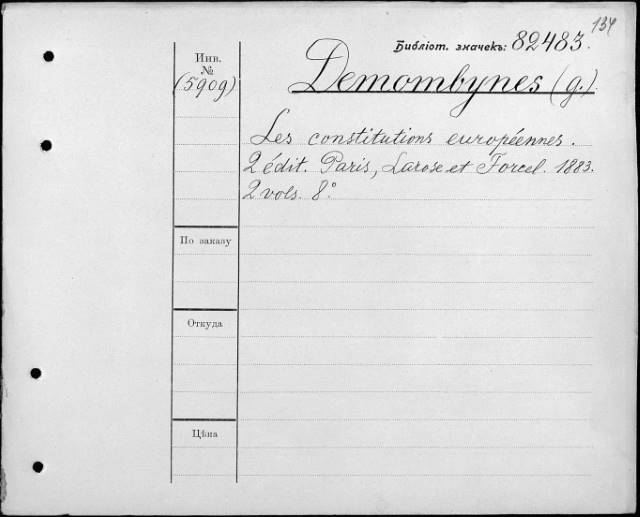 134
Библіот. значекъ: 82483.
Инв.
№
(5909)
Demombynes (g.)
Les constitutions européennes.
2 édit. Paris, Larose et Forcel. 1883.
2 vols. 8°
По заказу
Откуда
Цѣна